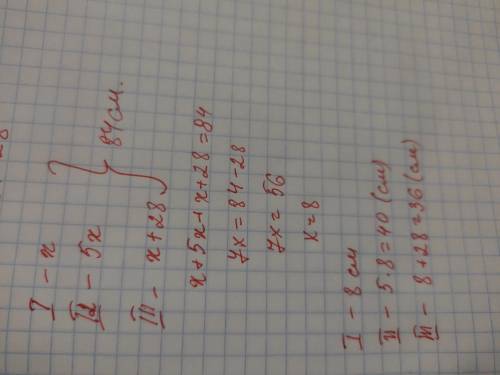 I - x
II - 5x
III - x+28
84 см.
x+5x+x+28=84
7x=84-28
7x=56
x=8
I - 8 см
II - 5·8=40 (см)
III - 8+28=36 (см)
28